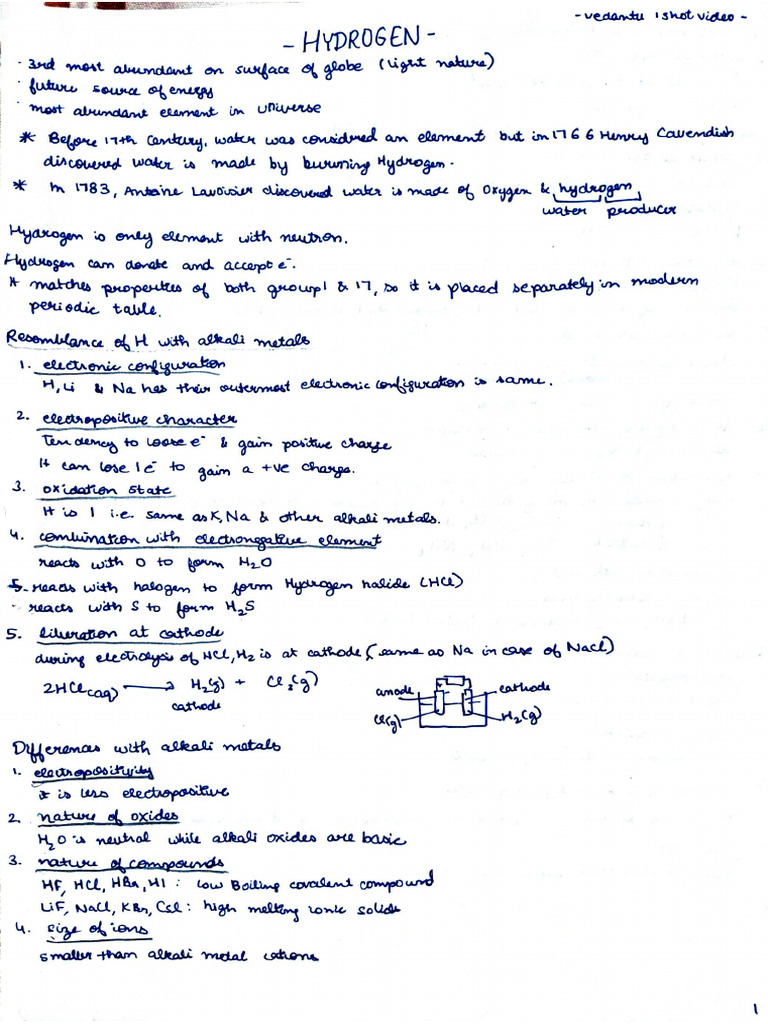 - vedantu 1 shot video -
- HYDROGEN -
· 3rd most abundant on surface of globe (light nature)
· future source of energy
· most abundant element in universe
* Before 17th century, water was considred an element but in 1766 Henry Cavendish
discovered water is made by burning Hydrogen.
* In 1783, Antoine Lavoisier discovered water is made of oxygen & hydrogen
water producer
Hydrogen is only element with neutron.
Hydrogen can donate and accept e⁻.
* matches properties of both group 1 & 17, so it is placed separately in modern
periodic table.
Resemblance of H with alkali metals
1. electronic configuration
H, Li & Na has their outermost electronic configuration is same.
2. electropositive character
Tendency to loose e⁻ & gain positive charge
It can lose 1e⁻ to gain a +ve charge.
3. oxidation state
It is 1 i.e. same as K, Na & other alkali metals.
4. combination with electronegative element
reacts with O to form H₂O
5. reacts with halogen to form Hydrogen halide (HCl)
- reacts with S to form H₂S
5. liberation at cathode
during electrolysis of HCl, H₂ is at cathode (same as Na in case of NaCl)
2HCl(aq) → H₂(g) + Cl₂(g)
cathode
anode cathode
Cl(g) H₂(g)
Differences with alkali metals
1. electroposituvity
it is less electropositive
2. nature of oxides
H₂O is neutral while alkali oxides are basic
3. nature of compounds
HF, HCl, HBr, HI : low Boiling covalent compound
LiF, NaCl, KBr, CsI : high melting ionic solids
4. size of ions
smaller than alkali metal cations
1